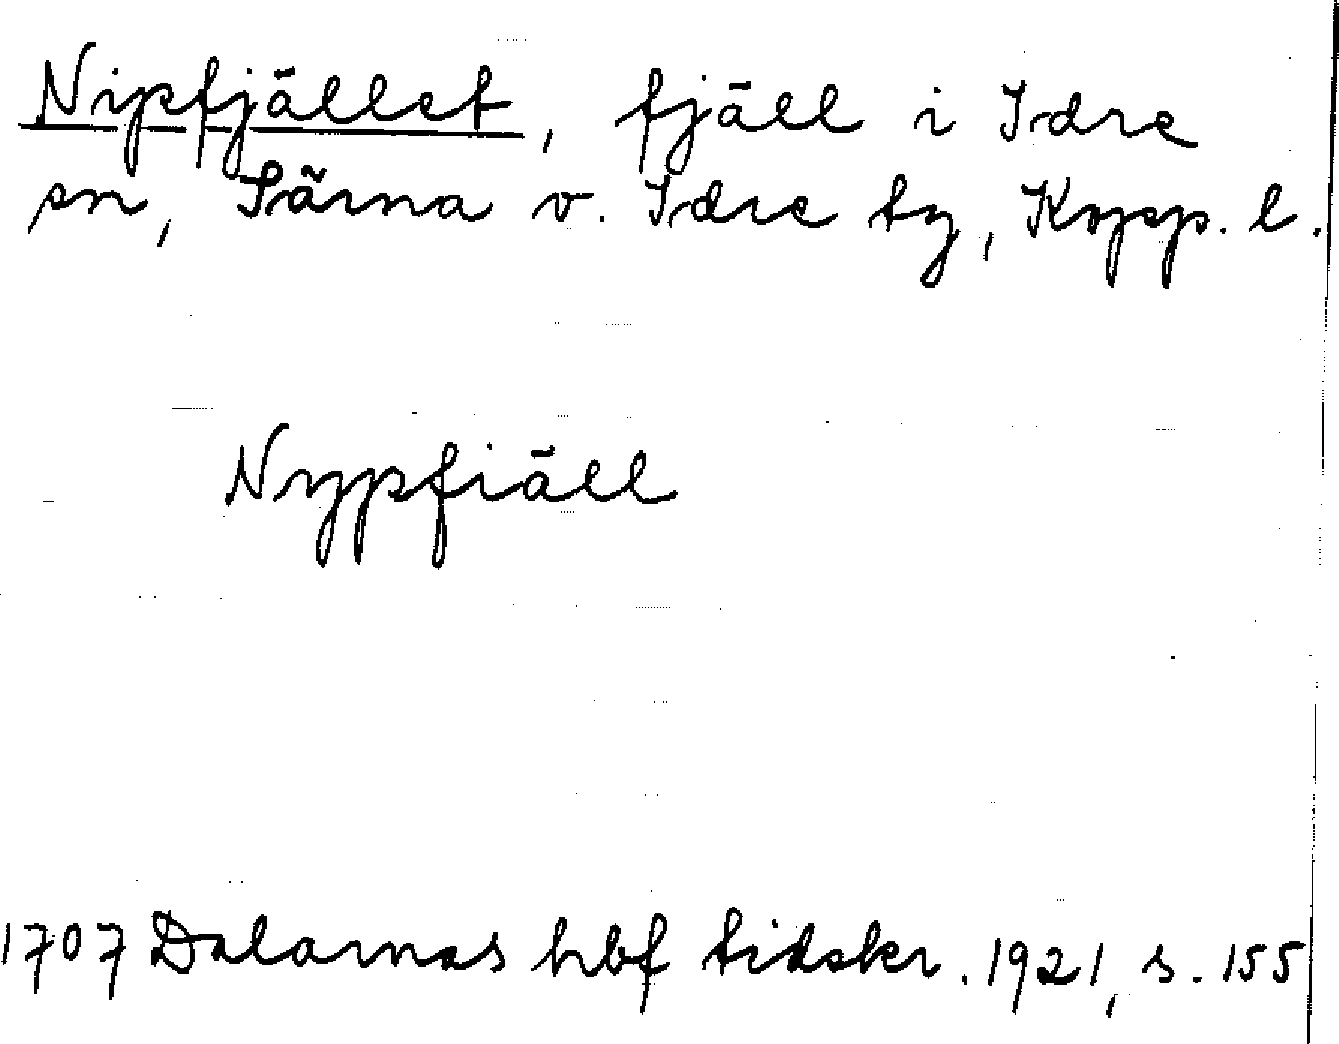 Nipfjället, fjäll i Idre
sn, Särna o. Idre tg, Kopp. l.
Nypfiäll
1707 Dalarnas hbf tidskr. 1921, s. 155